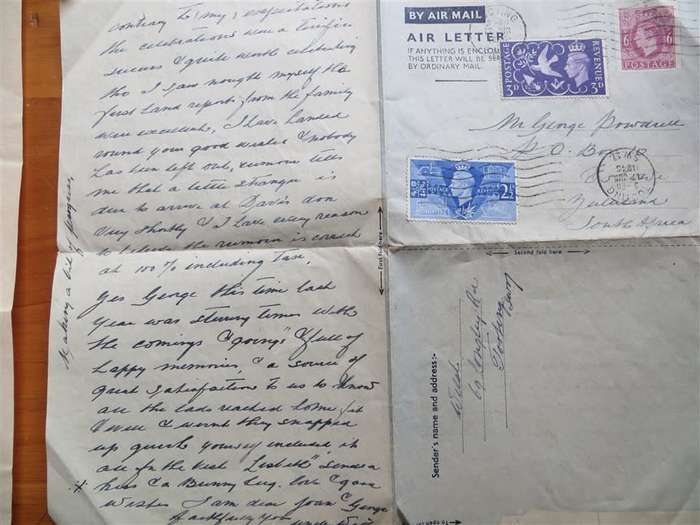 contrary to my expectations
the celebrations were a terrific
success & quite worth celebrating
tho I saw nought myself the
first hand reports from the family
were excellent, I have handed
round your good wishes & nobody
has been left out, rumour tells
me that a little stranger is
due to arrive at Davis don
very shortly & I have every reason
to believe the rumour is correct
at 100% including Tax.
Yes George this time last
year was stirring times with
the comings & "goings" & full of
happy memories, & a source of
great satisfaction to us to know
all the lads reached home
I were snapped
up quick yourself included, it
all for the best "Lisbeth" sends a
kiss & a Bunny hug. love & good
wishes I am dear Joan & George
faithfully yos
Making a bit of progress
First fold here
BY AIR MAIL
AIR LETTER
IF ANYTHING IS ENCLOSED
THIS LETTER WILL BE SENT
BY ORDINARY MAIL.
POSTAGE
REVENUE
3D
3D
6D
6D
POSTAGE
POSTAGE
REVENUE
2½
Mr George
P.O. Box
Zululand
South Africa
Second fold here
Sender's name and address:-
Tooting
To open